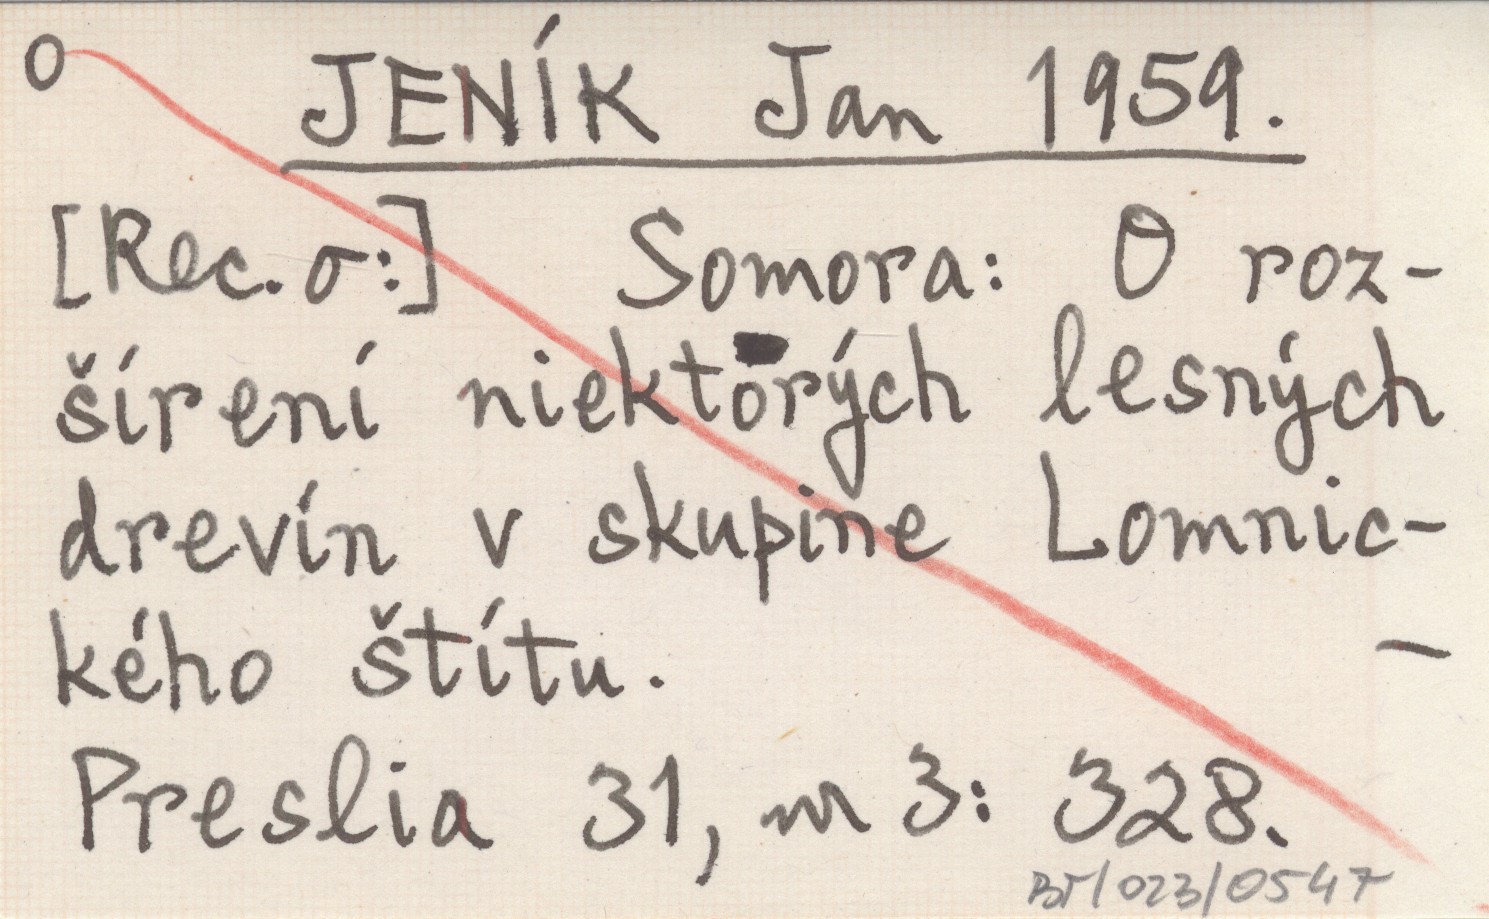 O JENÍK Jan 1959.
[Rec. o:] Somora: O roz-
šírení niektorých lesných
drevín v skupine Lomnic-
kého štítu. –
Preslia 31, m 3: 328.
BT/023/0547